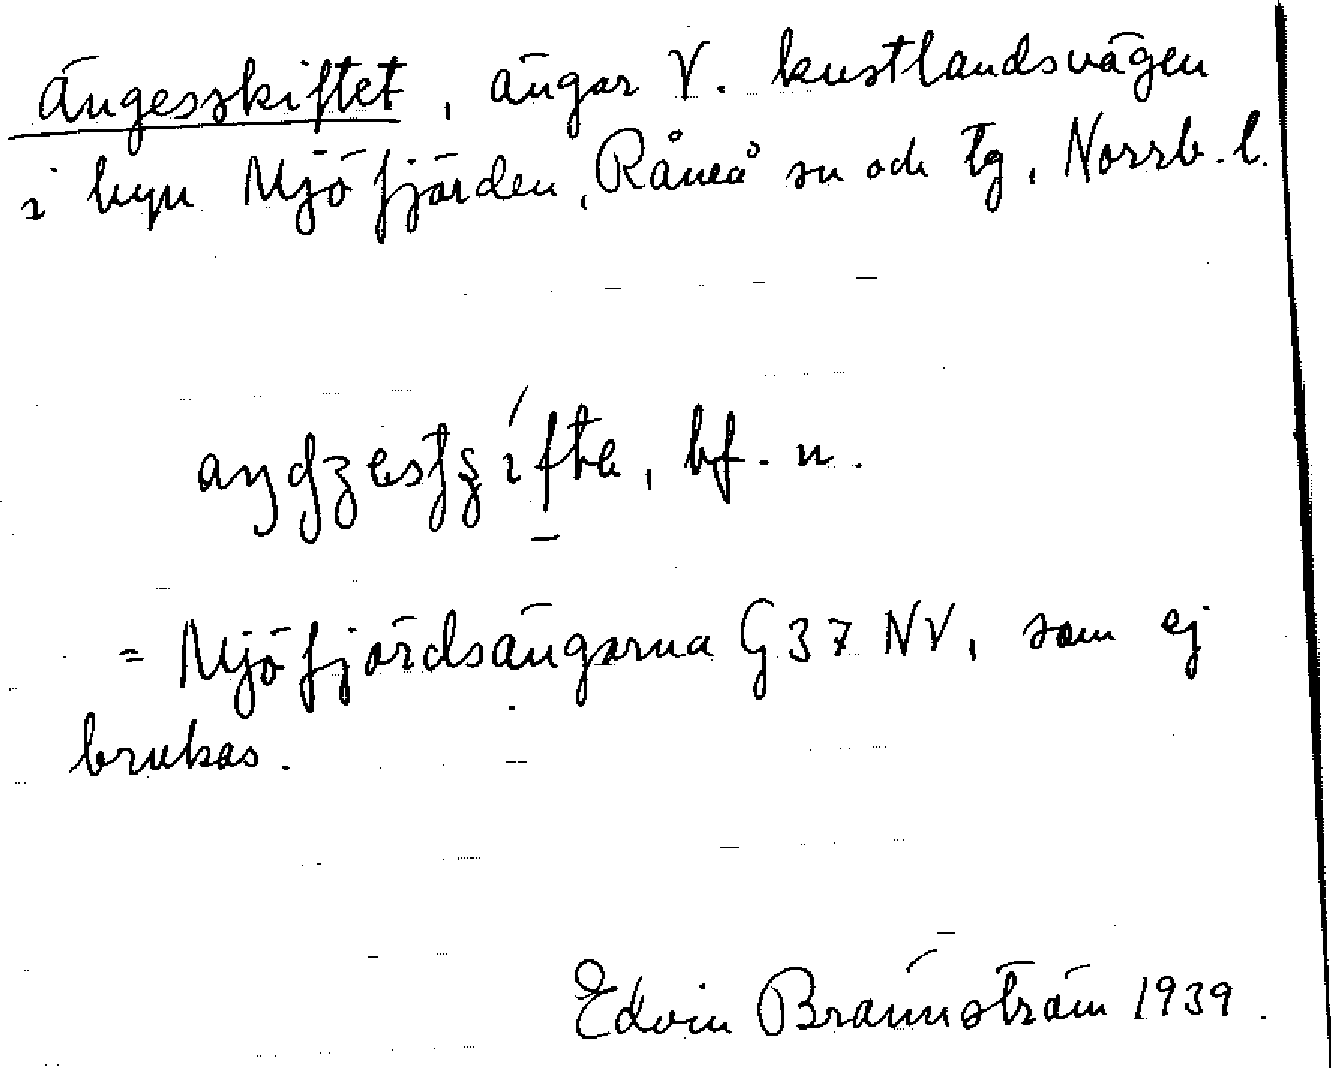 Ängesskiftet, ängar V. kustlandsvägen
i byn Mjöfjärden, Råneå sn och tg, Norrb. l.
bf. n.
= Mjöfjärdsängarna G 37 NV, som ej
brukas.
Edvin Brännström 1939.